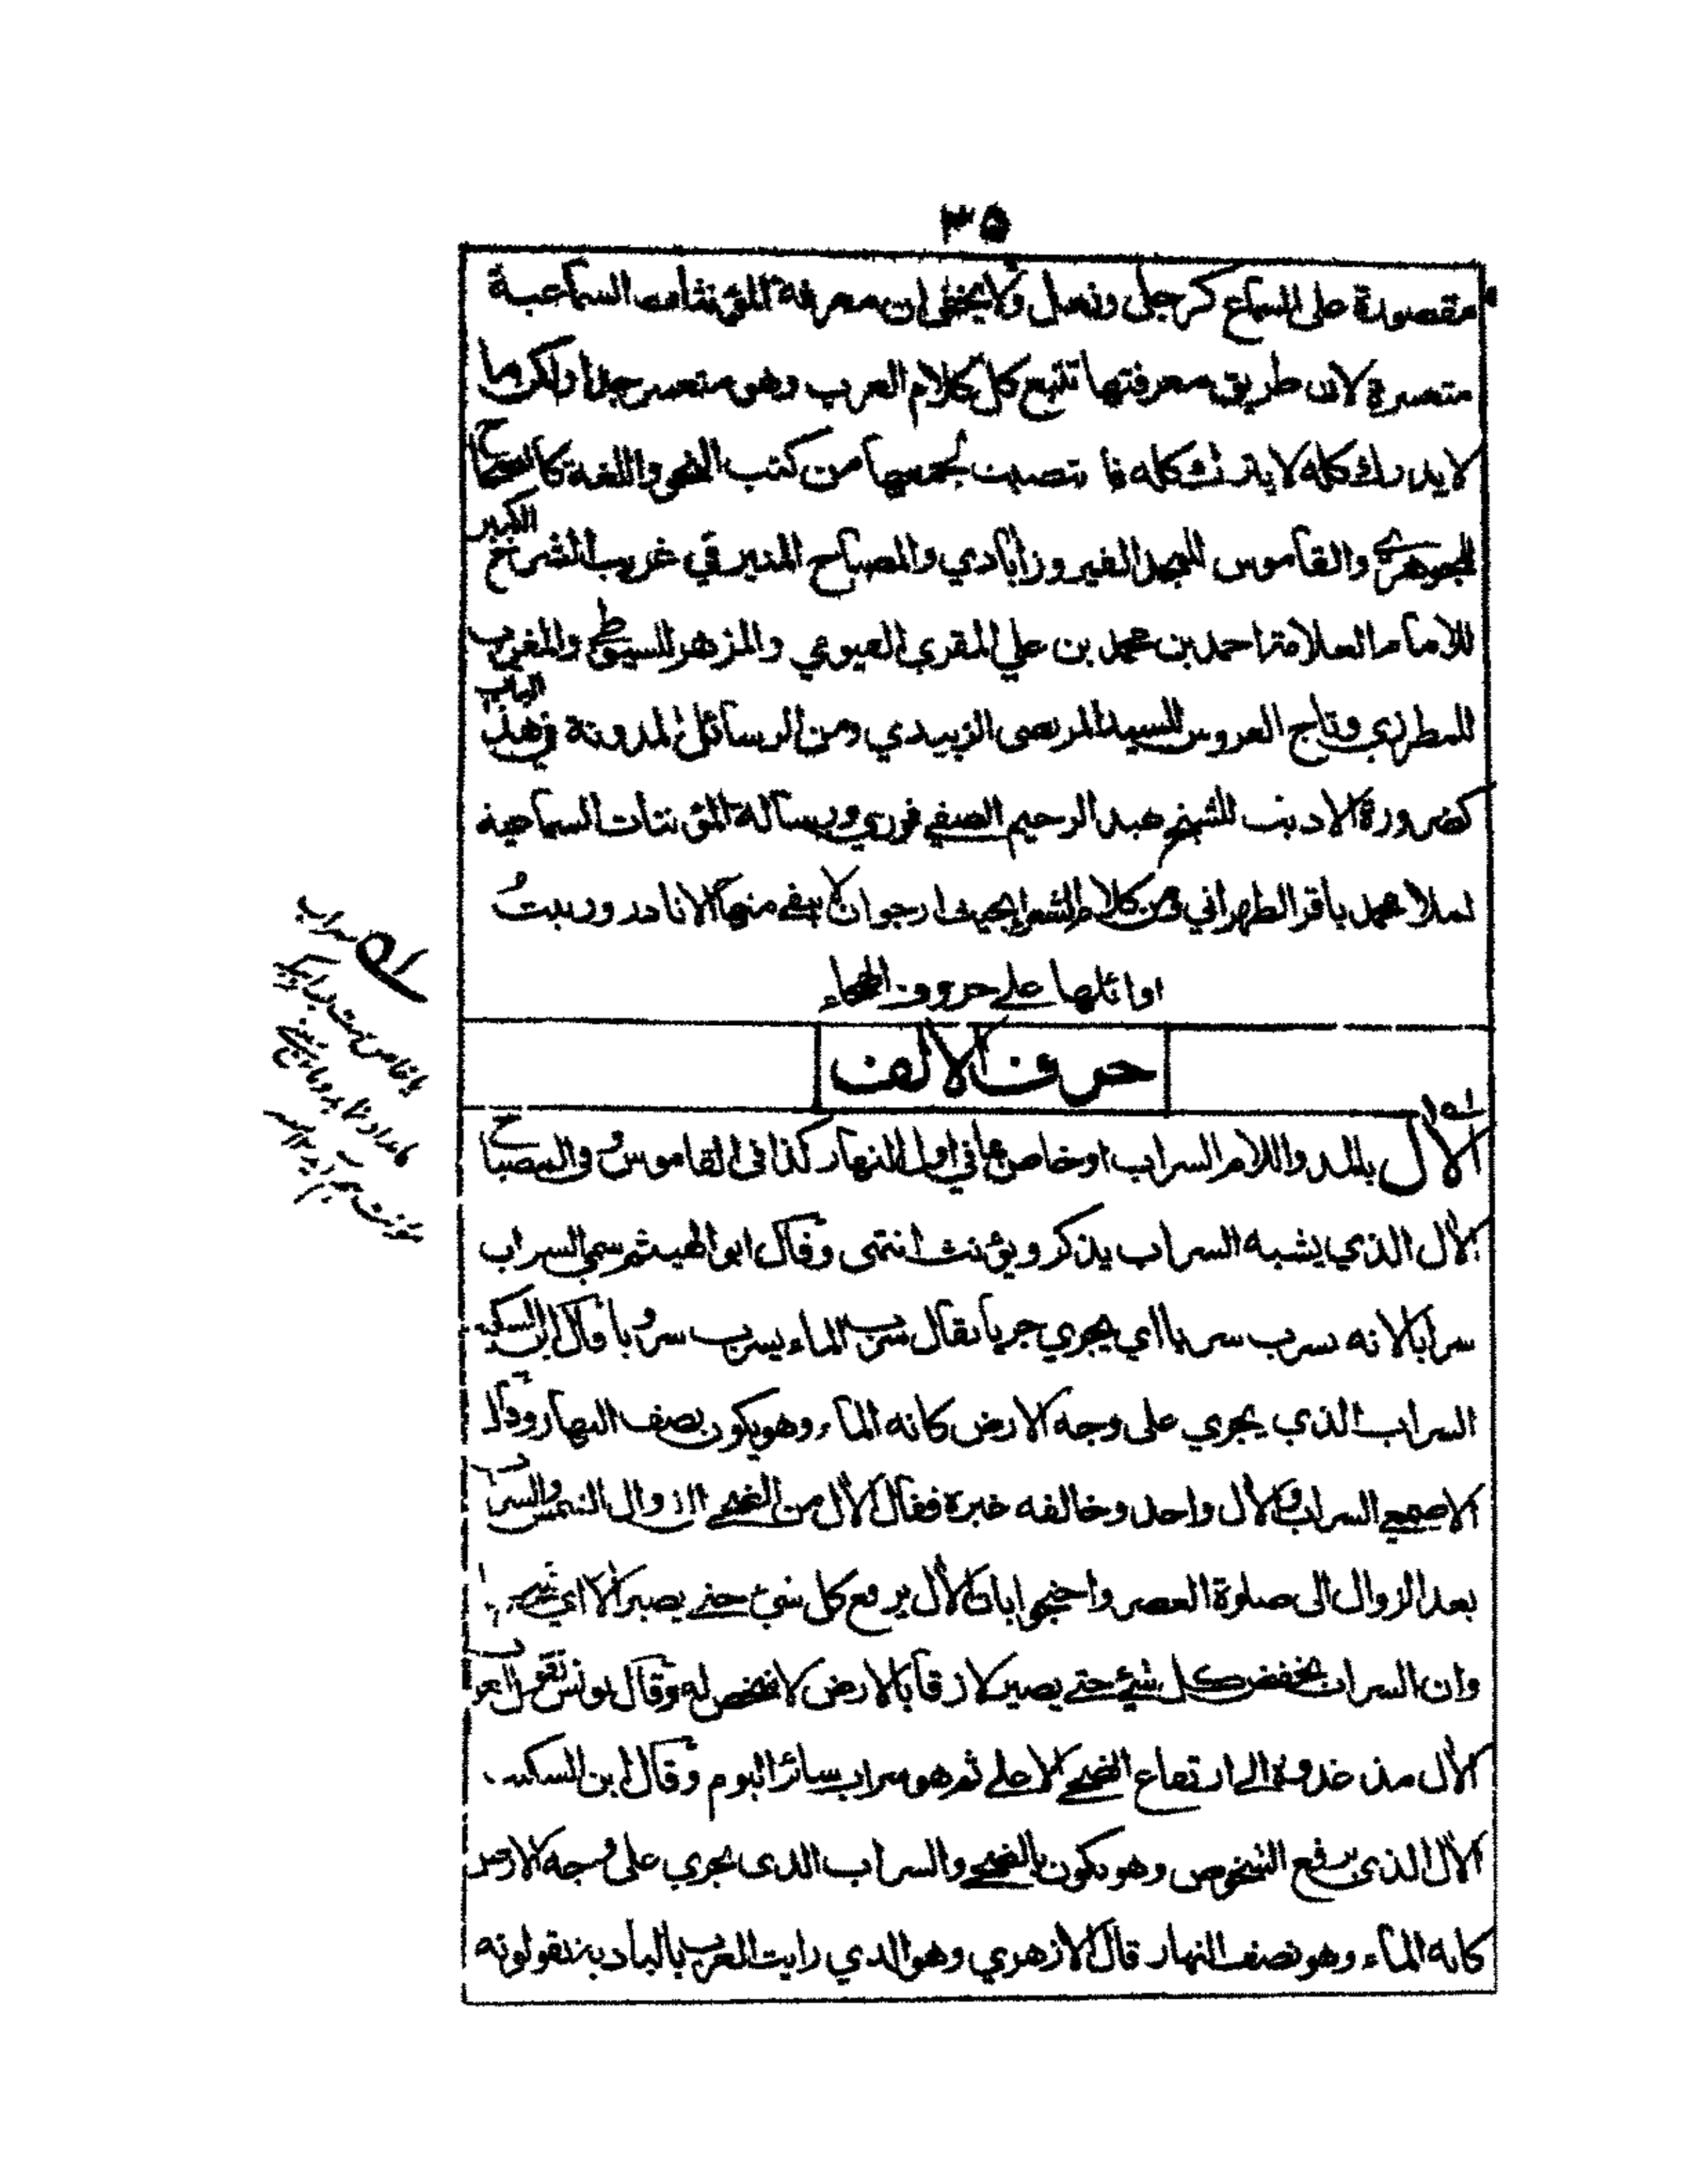 ٣٥
مقصورة على السماع كرجل ونعل ولا يخفى ان معرفة المؤنثات السماعية
متعسرة لان طريق معرفتها تتبع كل كلام العرب وهو متعسر جدا ولكن ما
لا يدرك كله لا يترك كله فا تتصيت لجمعها من كتب النحو واللغة كالصحاح
للجوهري والقاموس للمجد الفيروزابادي والمصباح المنير في غريب الشرح الكبير
للامام العلامة احمد بن محمد بن علي المقري الفيومي والمزهر للسيوطي والمغرب
للمطرزي وتاج العروس للسيد المرتضى الزبيدي ومن الرسائل المدونة في هذا الباب
كضرورة الاديب للشيخ عبد الرحيم الصفي فوري ورسالة المؤنثات السماعية
لملا محمد باقر الطهراني ومن كلام الشعراء بحيث ارجو ان لا يبقى منها الا نادر ورتبتُ
اوائلها على حروف الهجاء
حرف الالف
الآل بالمد واللام السراب او خاص بما في اول النهار كذا في القاموس وفي المصباح
الآل الذي يشبه السراب يذكر ويؤنث انتهى وقال ابو الهيثم سمي السراب
سرابا لانه يسرب سربا اي يجري جريا يقال سرب الماء يسرب سروبا وقال ابن السكيت
السراب الذي يجري على وجه الارض كانه الماء وهو يكون نصف النهار وقال
الاصمعي السراب والآل واحد وخالفه غيره فقال الآل من الضحى الى زوال الشمس والسراب
بعد الزوال الى صلوة العصر واحتجوا بان الآل يرفع كل شئ حتى يصير آلا اي شخصا
وان السراب يخفض كل شئ حتى يصير لازقا بالارض لا شخص له وقال يونس تقول العرب
الآل مذ غدوة الى ارتفاع الضحى الاعلى ثم هو سراب سائر اليوم وقال ابن السكيت
الآل الذي يرفع الشخوص وهو يكون بالضحى والسراب الذي يجري على وجه الارض
كانه الماء وهو نصف النهار قال الازهري وهو الذي رايت العرب بالبادية يقولونه
سراب